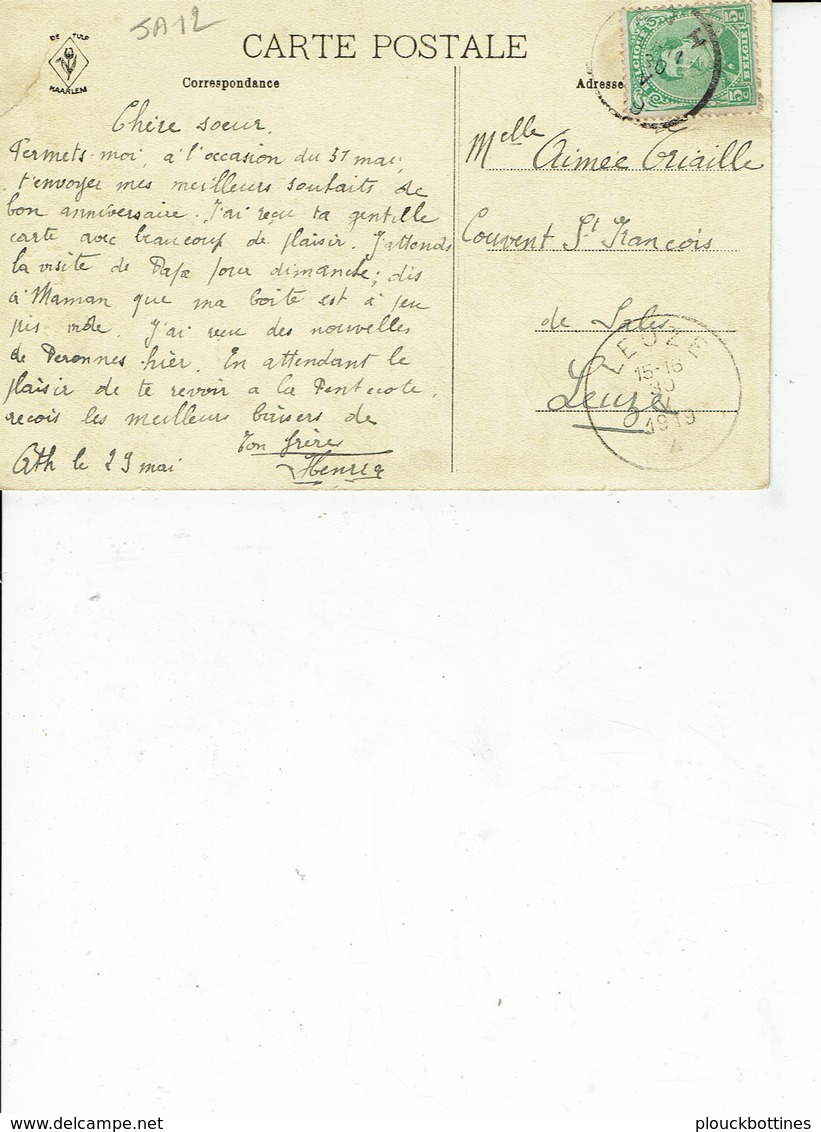 5A12
DE TULP
HAARLEM
CARTE POSTALE
Correspondance
Adresse
BELGIQUE
BELGIË
5c
5c
Chère soeur,
Permets-moi, à l'occasion du 31 mai,
t'envoyer mes meilleurs souhaits de
bon anniversaire. J'ai reçu ta gentille
carte avec beaucoup de plaisir. J'attends
la visite de Papa pour dimanche; dis
à Maman que ma boîte est à peu
J'ai reçu des nouvelles
de Peronnes hier. En attendant le
plaisir de te revoir a la Pentecote,
reçois les meilleurs baisers de
Ton frère
Ath le 29 mai
Melle Aimée Criaille
Couvent St François
de Sales
Leuze
LEUZE
15-16
30
V
1919
plouckbottines